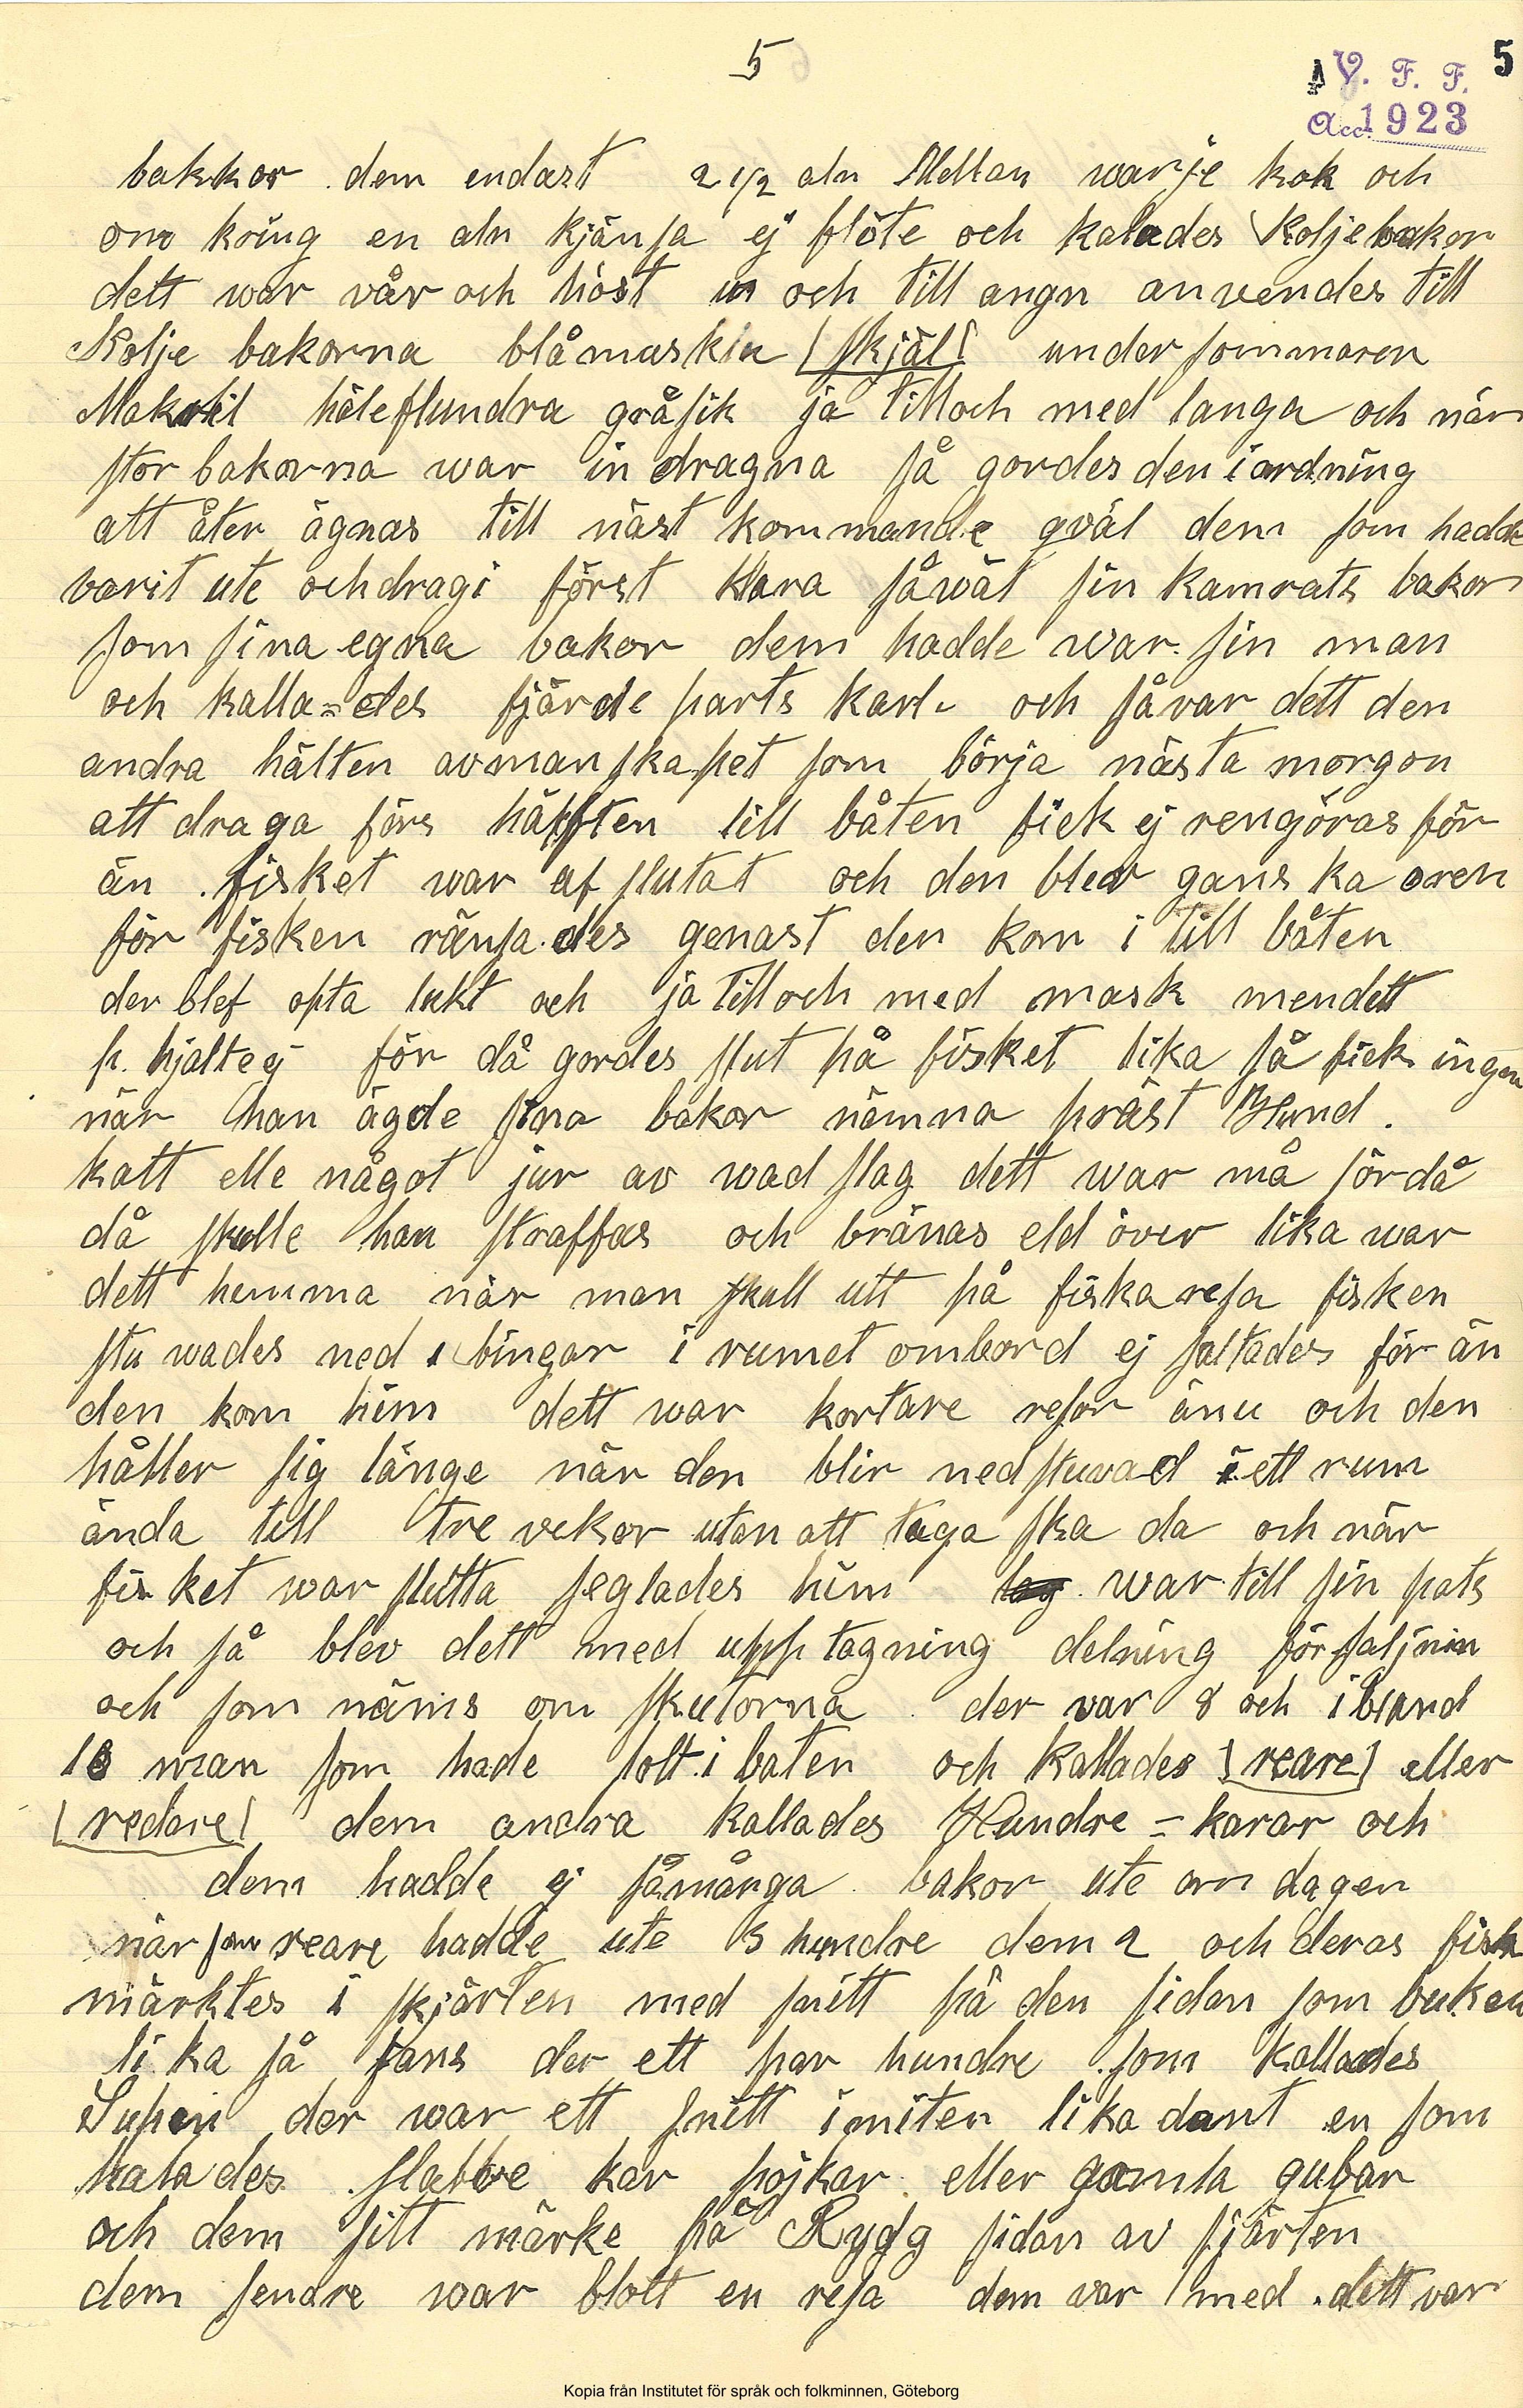 5
5
V. F. F.
Acc. 1923
bakkor dem endast 2 1/2 aln Mellan warje kok och
om kring en aln kjänsa ej flöte och kalades Koljebakor
dett war vår och höst och till angn anvendes till
Kolje bakorna blåmuskla [skjäl] under sommaren
Makril häleflundra gråsik ja till och med langa och när
stor bakorna war in dragna så gordes den i ordning
att åter ägnas till näst kommande qväl dem som hadde
varit ute och dragi först klara såwäl sin kamrats bakor
som sina egna bakor dem hadde war sin man
och kalla=des fjärde parts karl och så var dett den
andra hälten av manskapet som börja nästa morgon
att draga förs hälften till båten fick ej rengöras för
än fisket war af slutat och den blev gans ka oren
för fisken ränsa des genast den kom i till båten
der blef opta lukt och ja till och med mask men dett
hjalte ej för då gordes slut på fisket lika så fick ingen
när han ägde sina bakor nämna präst Hund.
katt elle något jur av wad slag dett war må för då
då skulle han straffas och bränas eld över lika war
dett hemma när man skull utt på fiska resa fisken
stu wades ned i bingar i rumet ombord ej saltades för än
den kom him dett war kortare resor änu och den
håller sig länge när den blir nedstuvad i ett rum
ända till tre vekor utan att taga ska da och när
fisket war slutta seglades him war till sin pats
och så blev dett med upp tagning delning försaljnin
och som näms om skutorna der var 8 och ibland
10 man som hade lott i baten och kallades [reare] eller
[redare] dem andra kallades Hundre = karar och
dem hadde ej såmånga bakor ute om dagen
när som reare hadde ute 3 hundre dem 2 och deras fisk
märktes i skjärten med snitt på den sidan som buken
li ka så fans der ett par hundre som kallades
Supen der war ett snitt i miten lika dant en som
kalades slabbe kar pojkar eller gamla gubar
och dem sitt märke på Rygg sidan av sjärten
dem senare war blott en resa dem var med. dett var
Kopia från Institutet för språk och folkminnen, Göteborg